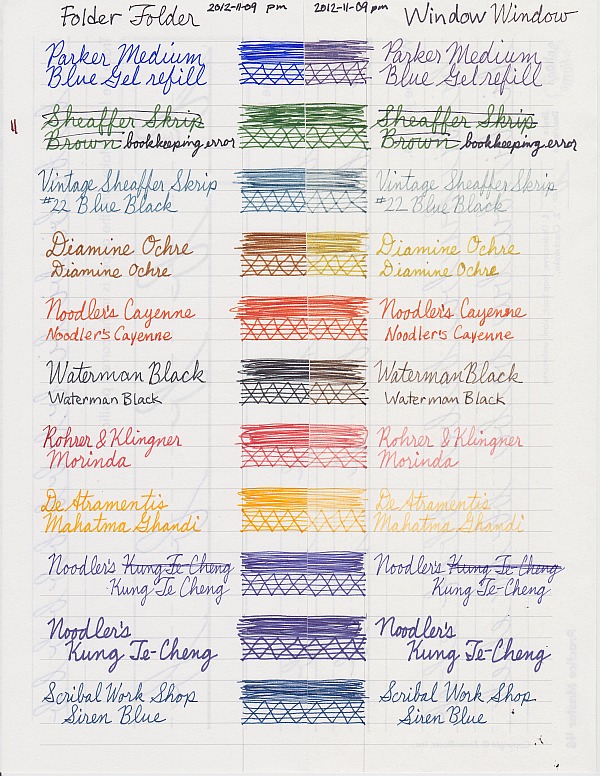 Folder Folder 2012-11-09 pm 2012-11-09 pm Window Window
Parker Medium Parker Medium
Blue Gel refill Blue Gel refill
Sheaffer Skrip Sheaffer Skrip
Brown bookkeeping error Brown bookkeeping error
Vintage Sheaffer Skrip Vintage Sheaffer Skrip
#22 Blue Black #22 Blue Black
Diamine Ochre Diamine Ochre
Diamine Ochre Diamine Ochre
Noodler's Cayenne Noodler's Cayenne
Noodler's Cayenne Noodler's Cayenne
Waterman Black Waterman Black
Waterman Black Waterman Black
Rohrer & Klingner Rohrer & Klingner
Morinda Morinda
De Atramentis De Atramentis
Mahatma Ghandi Mahatma Ghandi
Noodler's Kung Te-Cheng Noodler's Kung Te-Cheng
Kung Te Cheng Kung Te-Cheng
Noodler's Noodler's
Kung Te-Cheng Kung Te-Cheng
Scribal Work Shop Scribal Work Shop
Siren Blue Siren Blue